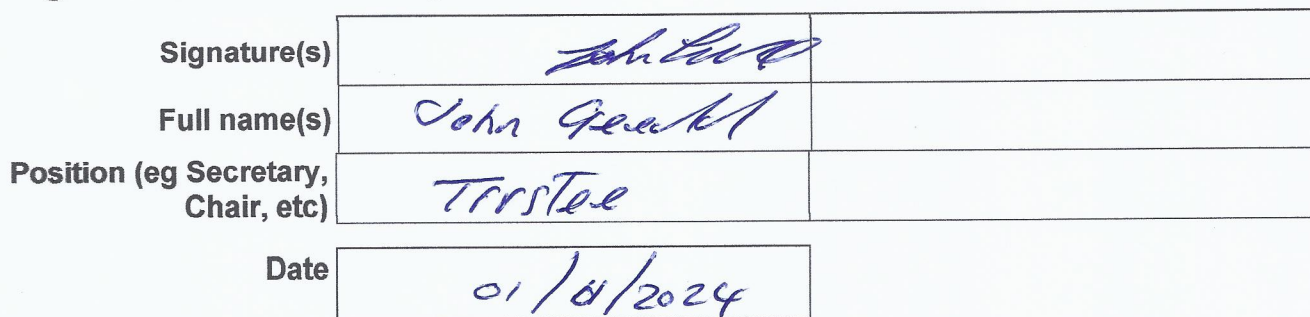 Signature(s)
Full name(s) John
Position (eg Secretary,
Chair, etc) Trustee
Date 01/ /2024